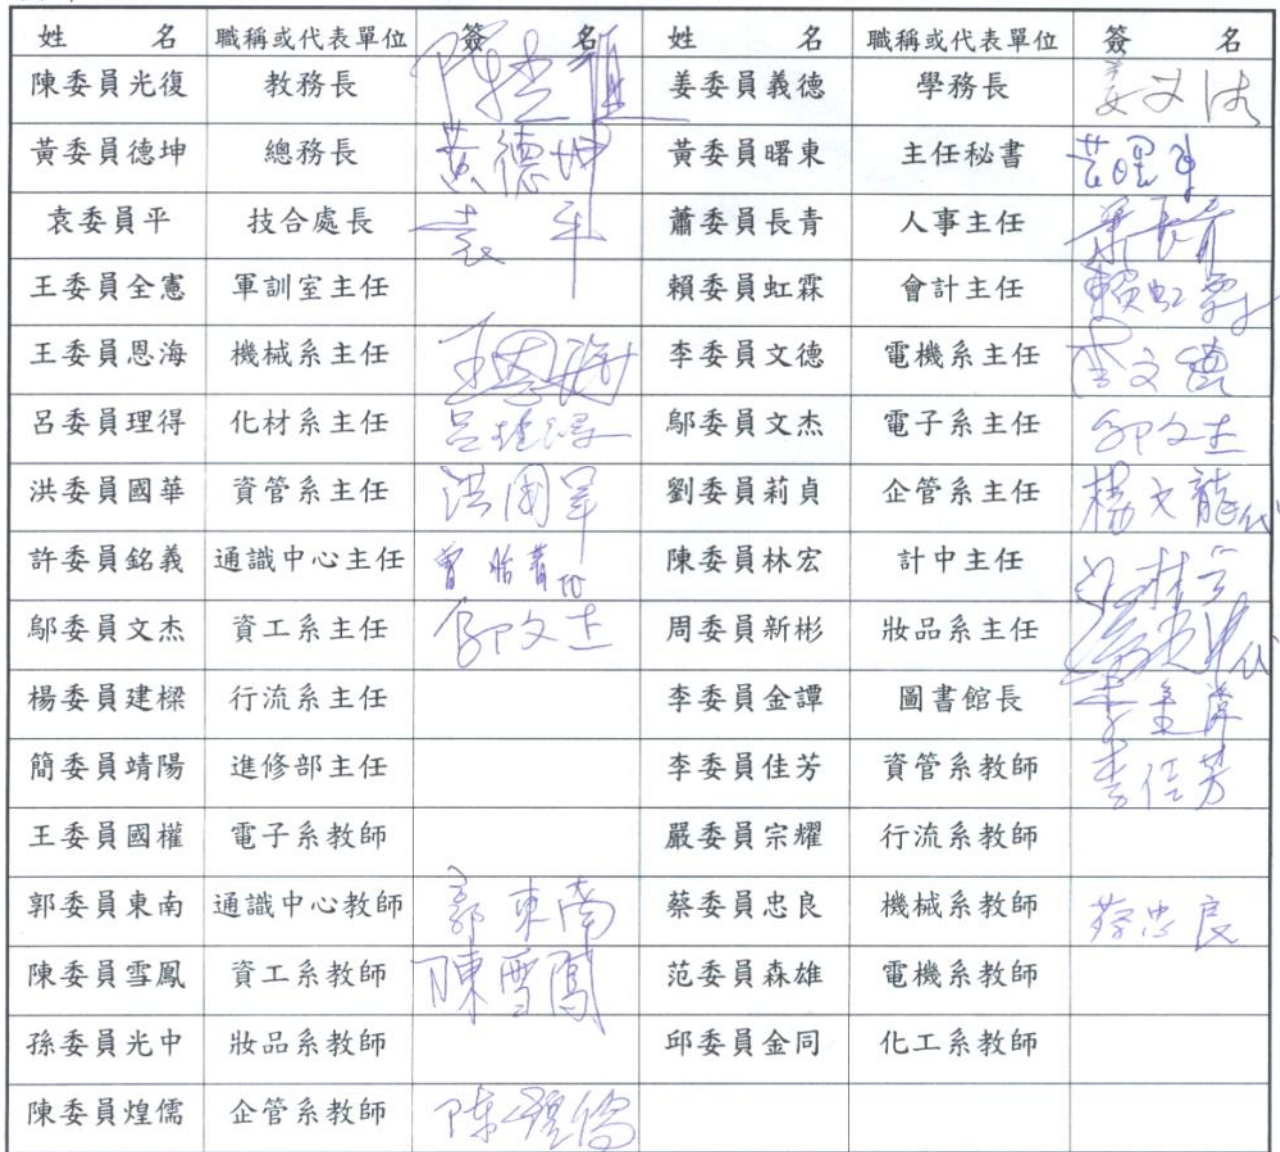 姓 名 職稱或代表單位 簽 名 姓 名 職稱或代表單位 簽 名
陳委員光復 教務長 姜委員義德 學務長
黃委員德坤 總務長 黃德坤 黃委員曙東 主任秘書
袁委員平 技合處長 袁平 蕭委員長青 人事主任
王委員全憲 軍訓室主任 賴委員虹霖 會計主任 賴虹霖
王委員恩海 機械系主任 王恩海 李委員文德 電機系主任 李文德
呂委員理得 化材系主任 呂理得 鄔委員文杰 電子系主任
洪委員國華 資管系主任 洪國華 劉委員莉貞 企管系主任 楊文龍代
許委員銘義 通識中心主任 曾怡菁代 陳委員林宏 計中主任
鄔委員文杰 資工系主任 周委員新彬 妝品系主任
楊委員建樑 行流系主任 李委員金譚 圖書館長
簡委員靖陽 進修部主任 李委員佳芳 資管系教師 李佳芳
王委員國權 電子系教師 嚴委員宗耀 行流系教師
郭委員東南 通識中心教師 郭東南 蔡委員忠良 機械系教師 蔡忠良
陳委員雪鳳 資工系教師 陳雪鳳 范委員森雄 電機系教師
孫委員光中 妝品系教師 邱委員金同 化工系教師
陳委員煌儒 企管系教師